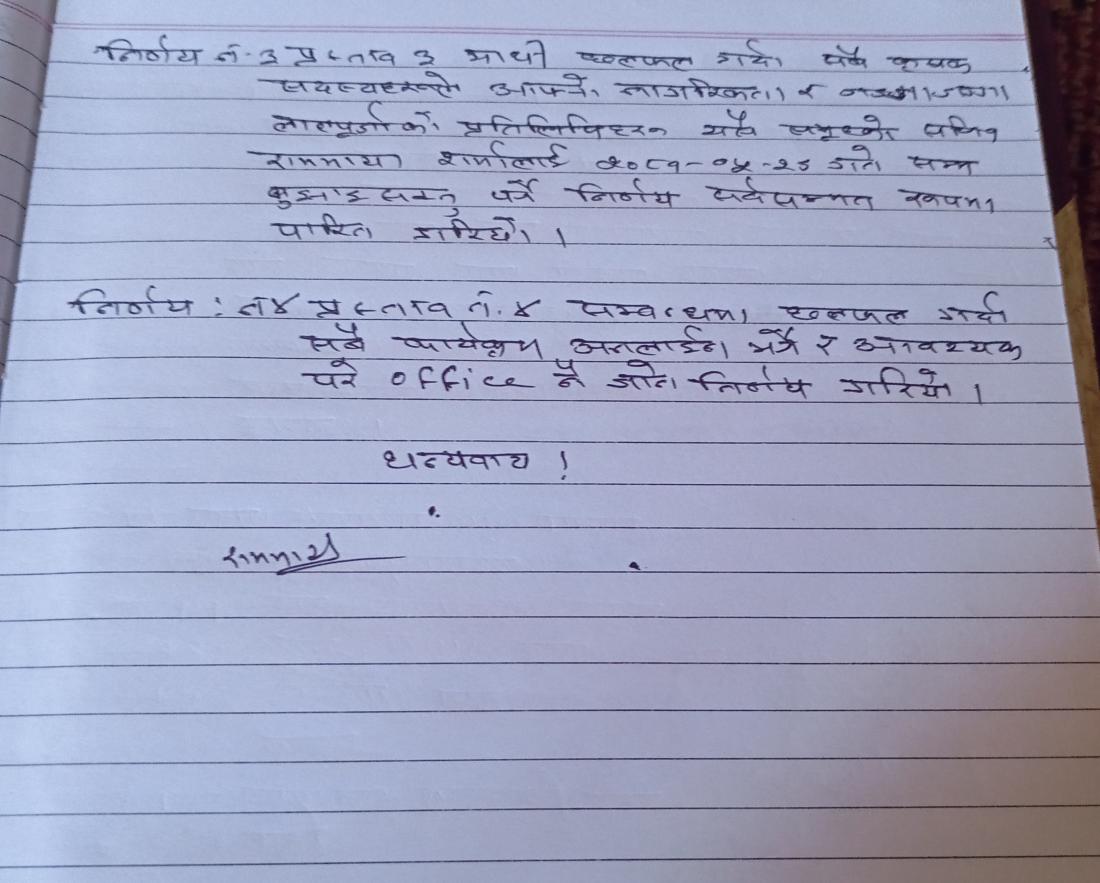 निर्णय नं. ३ प्रस्ताव ३ माथी छलफल गर्दा सबै कृषक
सदस्यहरुले आफ्नो नागरिकता र
लालपुर्जाको प्रतिलिपिहरु यसै समुहको सचिव
राममाया शर्मालाई २०८१-०५-२३ गते सम्म
बुझाइसक्नु पर्ने निर्णय सर्वसम्मत रुपमा
पारित गरियो ।
निर्णय : नं ४ प्रस्ताव नं. ४ सम्वन्धमा छलफल गर्दा
सबै कार्यक्रम अनलाईन भर्ने र आवश्यक
परे office नै जाने निर्णय गरियो ।
धन्यवाद !
राममाया